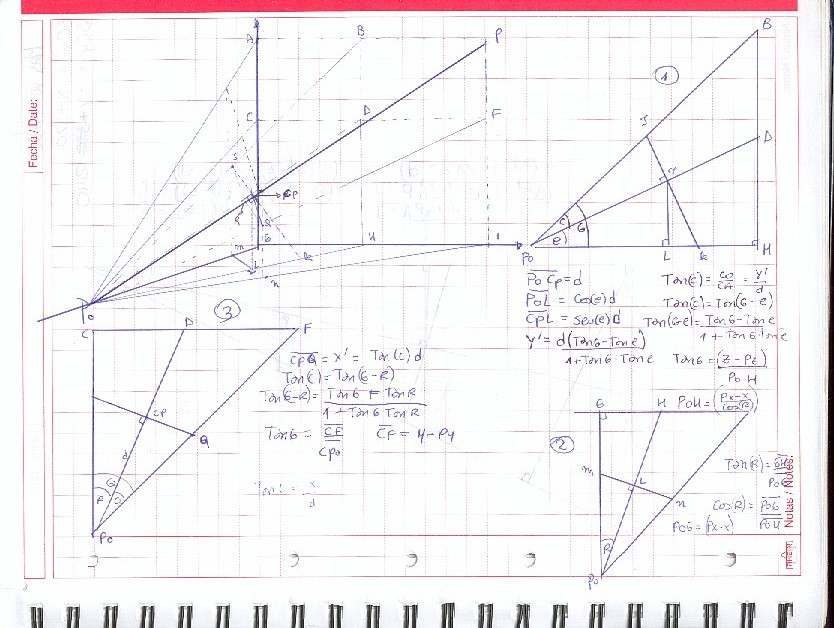 Fecha / Date:
A
B
P
C
D
F
S
CP
G
H
I
m
K
n
Po
①
B
J
D
C
G
e
Po
L
K
H
PoCp = d
PoL = Cos(e)d
CpL = Sen(e)d
y' = d(TanG-Tane)
1+TanG·Tane
Tan(c) = Co/CA = y'/d
Tan(c) = Tan(G-e)
Tan(G-e) = TanG-Tane
1+TanG·Tane
TanG = (Z-Pz)
PoH
PoH = (Px-x/Cos(R))
③
C
D
F
CP
Q
d
G
R
Po
CPQ = x' = Tan(c)d
Tan(c) = Tan(G-R)
Tan(G-R) = TanG - TanR
1+TanG TanR
TanG = CF
CPo
CF = Y-Py
TanC = x
d
②
G
H
m
L
n
R
Po
Tan(R) = GH
PoG
Cos(R) = PoG
PoH
PoG = (Px-x)
Notas / Notes: